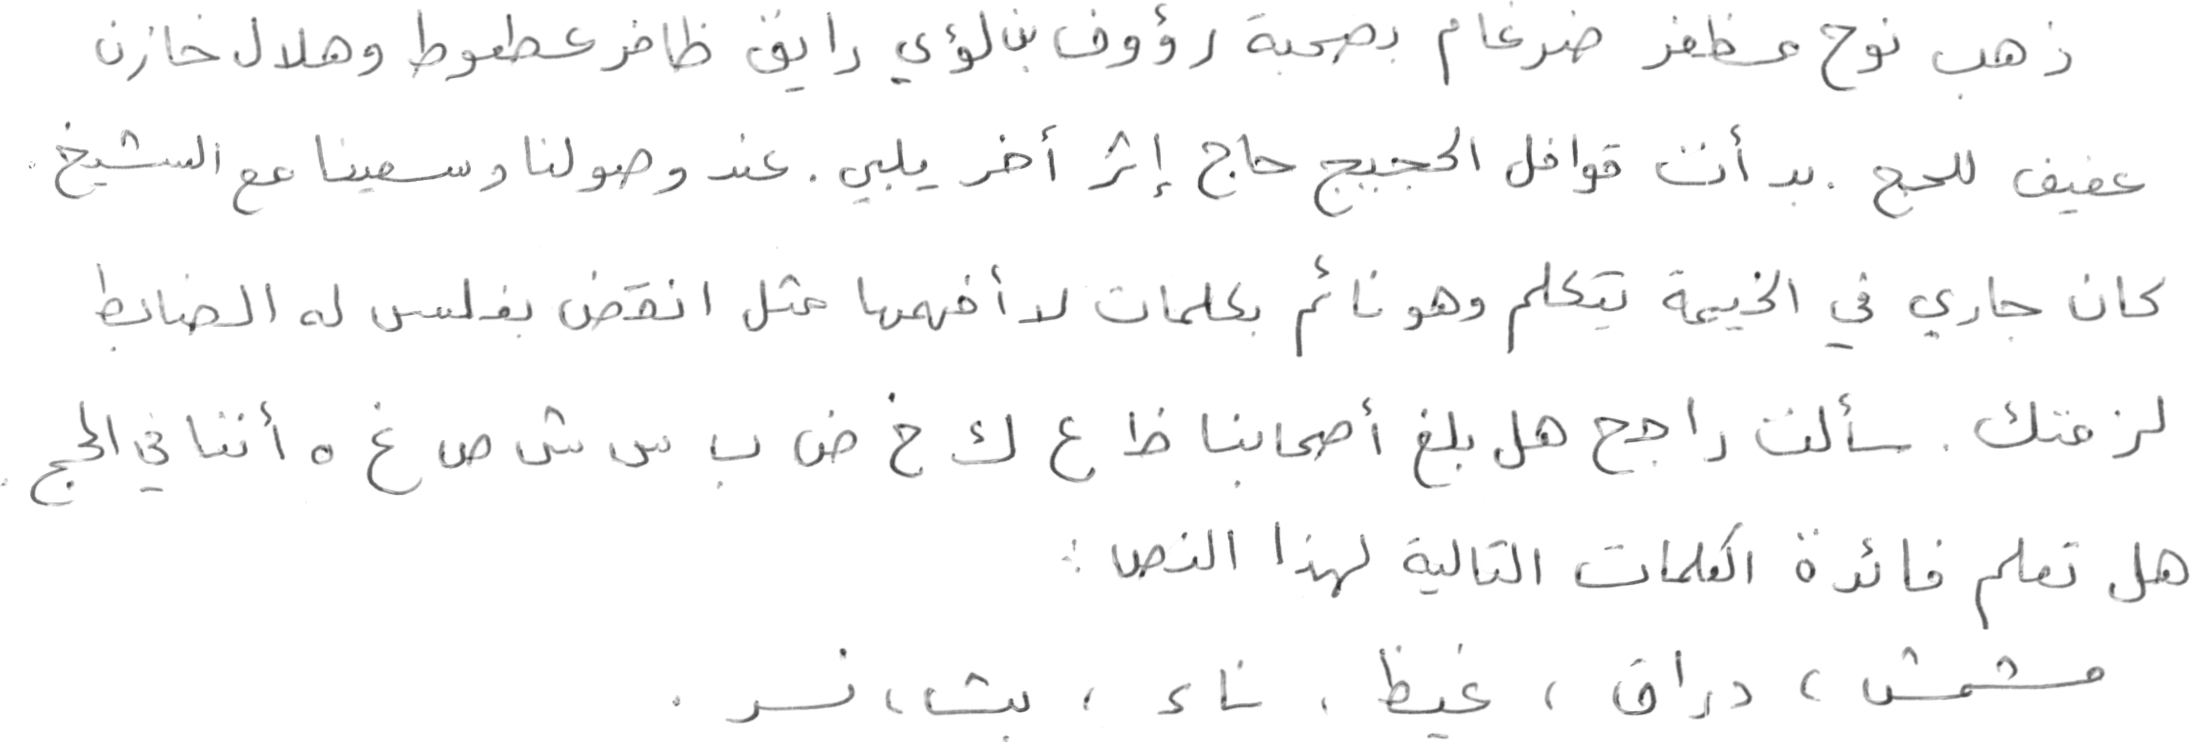 ذهب نوح مظفر ضرغام بصحبة رؤوف بن لؤي رايق ظافر عطعوط وهلال خازن
عفيف للحج . بدأت قوافل الحجيج حاج إثر أخر يلبي . عند وصولنا وسعينا مع الشيخ .
كان جاري في الخيمة يتكلم وهو نائم بكلمات لا أفهمها مثل انقض بفلس له الضابط
لزمتك . سألت راجح هل بلغ أصحابنا ظ ع ك خ ض ب س ش ص غ ه أننا في الحج .
هل تعلم فائدة الكلمات التالية لهذا النص :
مشمش ، دراق ، غيظ ، ناء ، بث ، نسر .